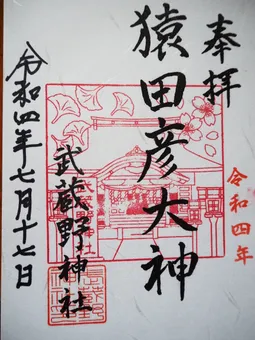 奉拝
猿田彦大神
武蔵野神社
令和四年七月十七日
令和四年